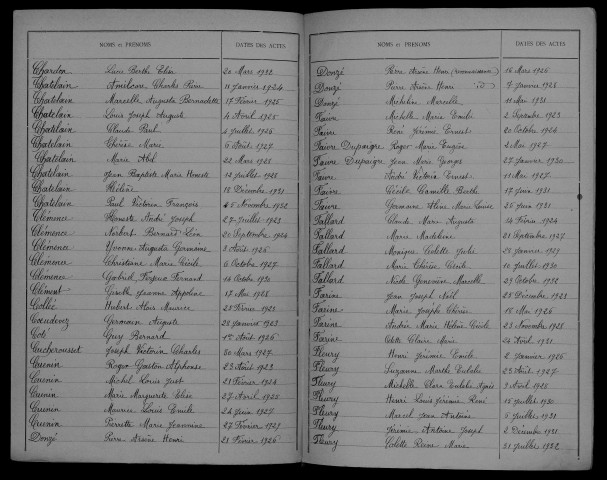 NOMS et PRÉNOMS DATES DES ACTES
Chardon Berthe 20 Mars 1922
Chatelain Ambroise Charles 11 Janvier 1924
Chatelain Marcelle Augusta Bernadette 17 Février 1925
Chatelain Louis Joseph Auguste 4 Août 1925
Chatelain Claude Paul Juillet 1926
Chatelain Thérèse Marie 6 Août 1927
Chatelain Marie Abel 22 Mars 1928
Chatelain Jean Baptiste Marie Juillet 1928
Chatelain Hélène 18 Décembre 1931
Chatelain Paul Victorin François Novembre 1932
Clémence André Joseph 27 Juillet 1923
Clémence Norbert Bernard Léon 20 Septembre 1924
Clémence Yvonne Augusta Germaine Août 1926
Clémence Christiane Marie Cécile 6 Octobre 1927
Clémence Gabriel Fernand 14 Octobre 1930
Clément Jeanne Appoline 17 Mai 1928
Hubert Maurice 28 Février 1923
Germain Auguste 28 Janvier 1923
Coté Guy Bernard Août 1926
Cucherousset Joseph Victorin Charles 30 Mars 1927
Cuenin Roger Gaston Alphonse 23 Août 1923
Cuenin Michel Louis Just 21 Février 1924
Cuenin Marie Marguerite Elise 27 Avril 1925
Cuenin Maurice Louis Emile 24 Juin 1927
Cuenin Pierrette Marie Jeannine 27 Février 1929
Donzé Pierre Arsène Henri 21 Février 1926
NOMS et PRÉNOMS DATES DES ACTES
Donzé Pierre Arsène Henri (reconnaissance) 16 Mars 1926
Donzé Pierre Arsène Henri 7 Janvier 1928
Donzé Micheline Marcelle 11 Mai 1931
Faivre Michelle Marie Emile 2 Septembre 1923
Faivre René Jérémie Ernest 20 Octobre 1924
Faivre Dupaigre Roger Marie Eugène 2 Mai 1927
Faivre Dupaigre Jean Marie Georges 27 Janvier 1930
Faivre André Victorin Ernest 11 Mai 1927
Faivre Cécile Camille Berthe 17 Juin 1931
Faivre Germaine Aline Marie Louise 26 Juin 1931
Fallard Claude Marie Auguste 14 Février 1924
Fallard Marie Madeleine 21 Septembre 1927
Fallard Monique Colette Janvier 1929
Fallard Marie Thérèse Cécile 10 Juillet 1930
Fallard Nicole Geneviève Marcelle 29 Octobre 1932
Farine Jean Joseph Noël 25 Décembre 1923
Farine Marie Josephe Thérèse 18 Mai 1926
Farine Andrée Marie Hélène Cécile 23 Novembre 1928
Farine Odette Claire Marie 24 Avril 1931
Fleury Henri Jérémie Emile 2 Janvier 1926
Fleury Suzanne Marthe Eulalie 25 Août 1927
Fleury Michelle Clara Eulalie Agnès 9 Avril 1928
Fleury Henri Louis Jérémie René 15 Juillet 1930
Fleury Marcel Jean Antoine Juillet 1931
Fleury Jérémie Antoine Joseph 2 Décembre 1931
Fleury Colette Reine Marie 31 Juillet 1932